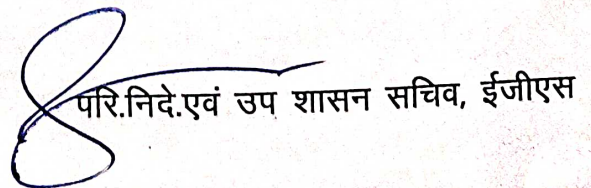 परि.निदे.एवं उप शासन सचिव, ईजीएस